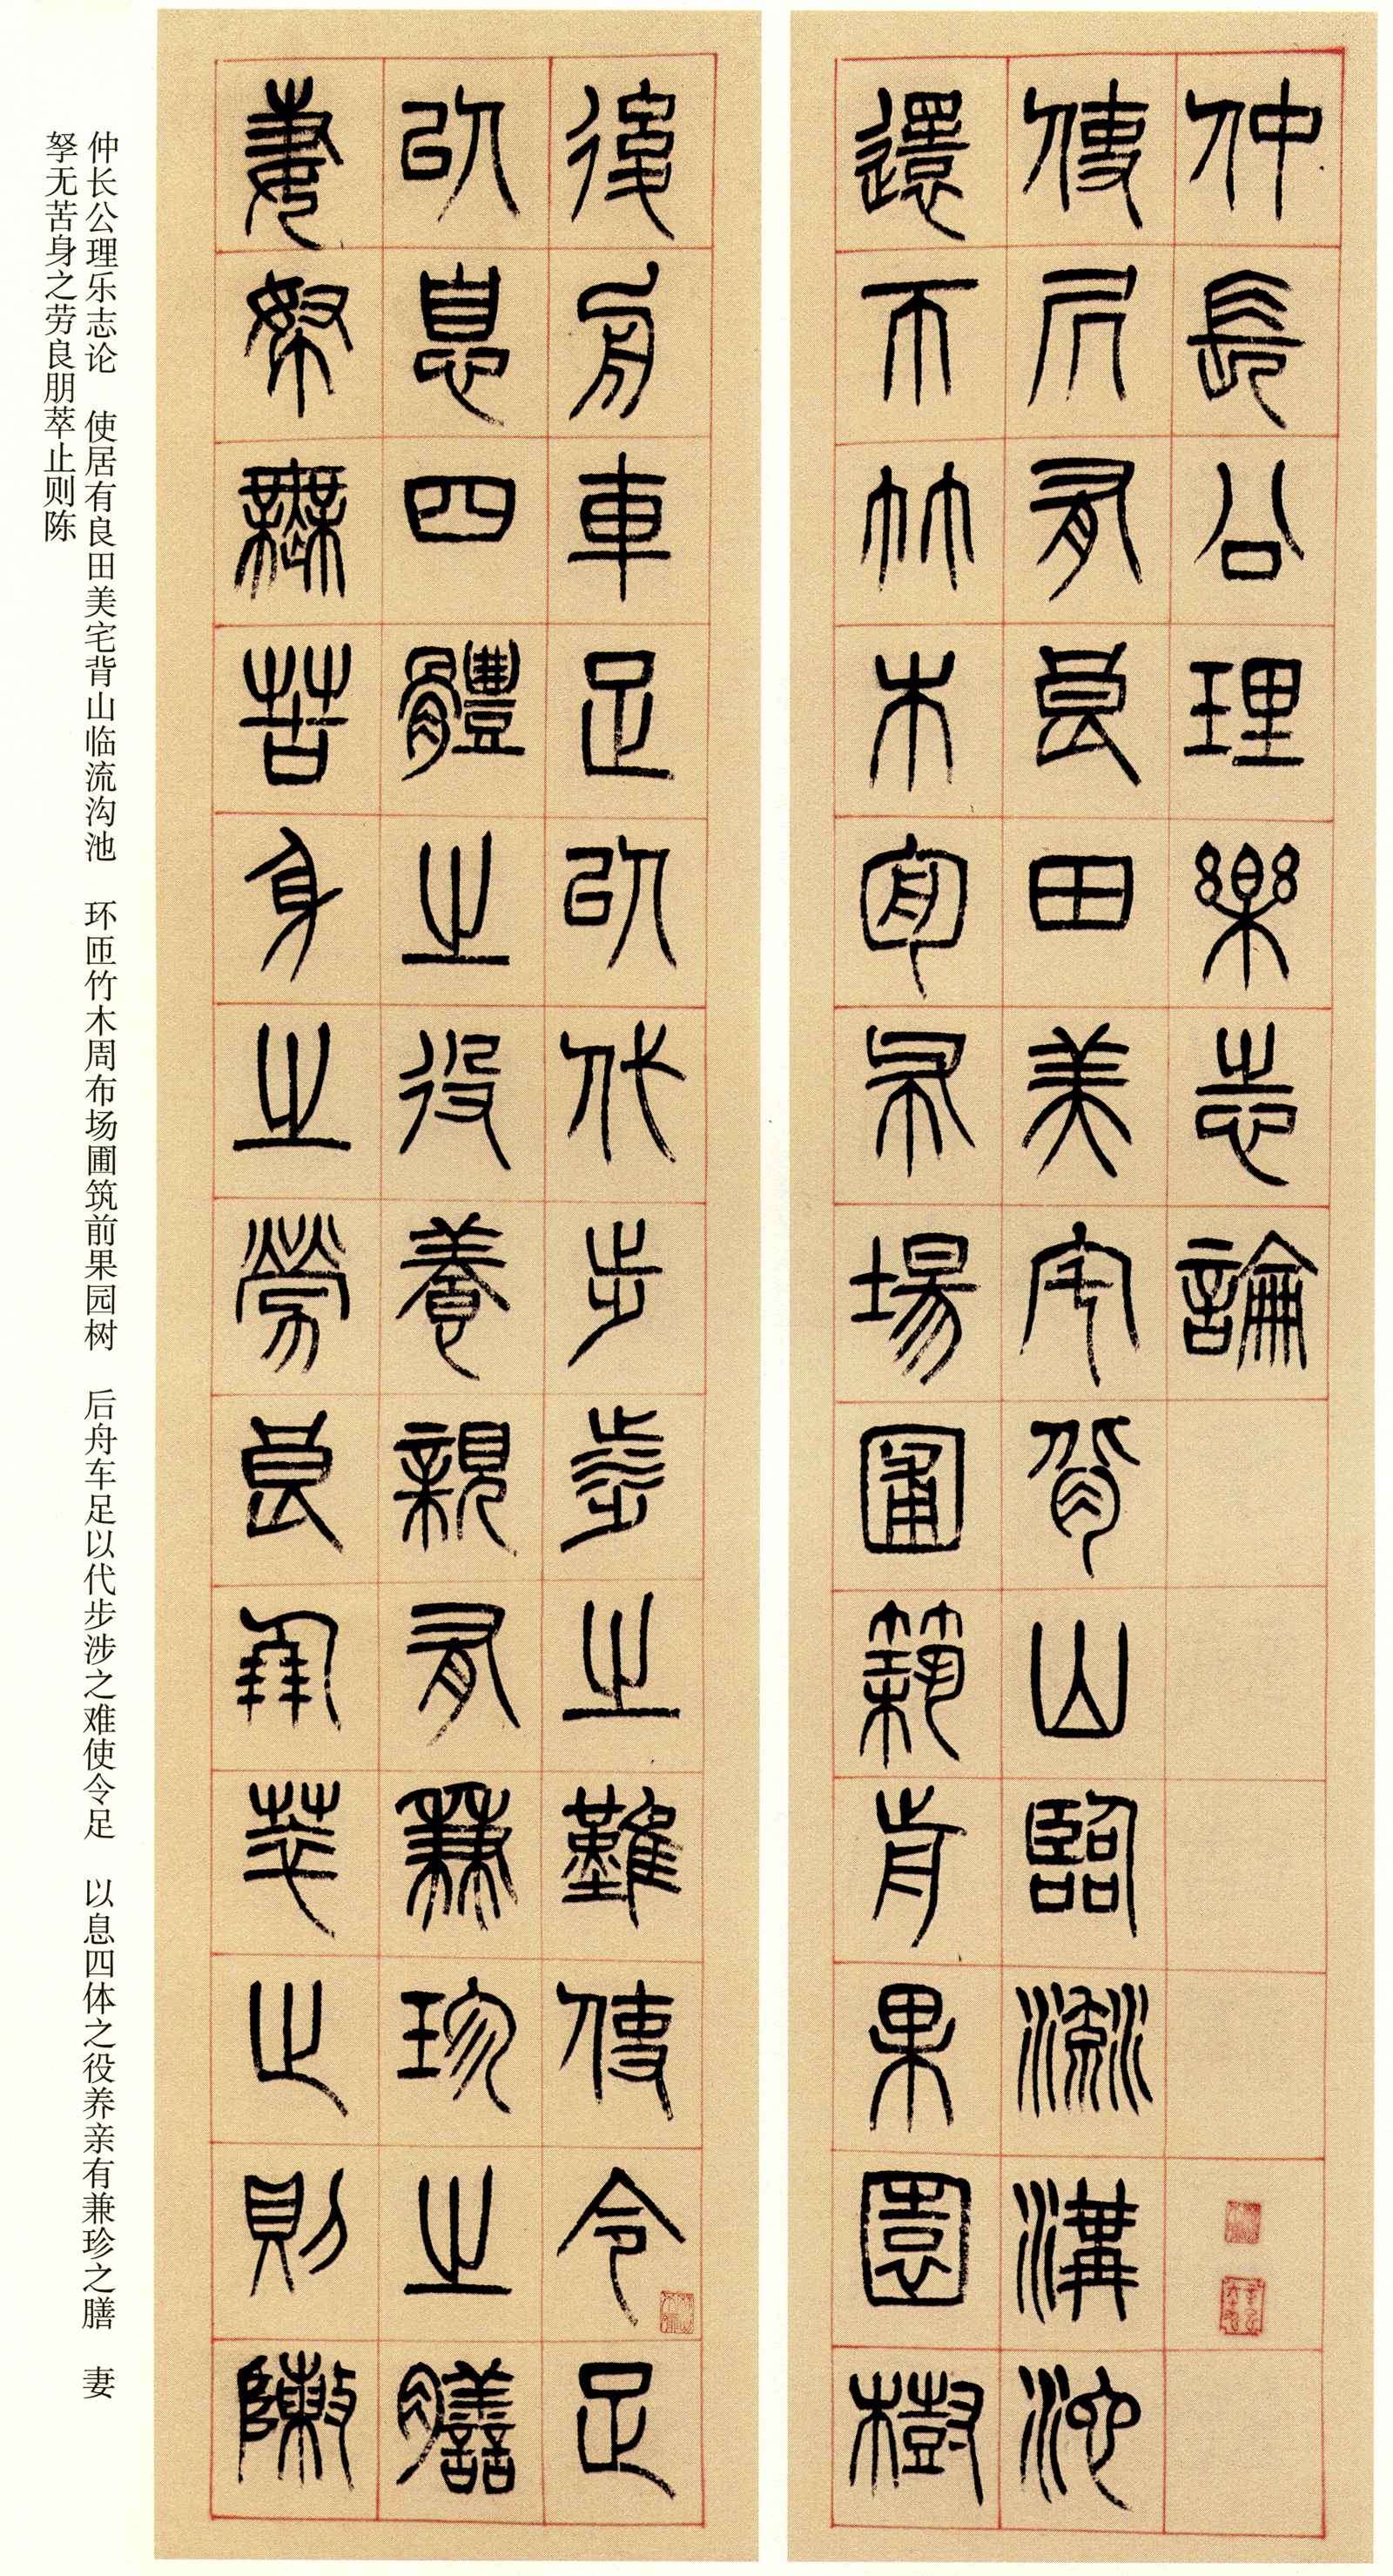 仲長公理樂志論
使凥有良田美宅背山臨流溝池
還帀竹木匊布場圃築前果園樹
後舟車足㠯代步涉之難使令足
㠯息四體之役養親有兼珍之膳
妻孥無苦身之勞良朋萃止則陳
仲长公理乐志论 使居有良田美宅背山临流沟池 环匝竹木周布场圃筑前果园树 后舟车足以代步涉之难使令足 以息四体之役养亲有兼珍之膳 妻
孥无苦身之劳良朋萃止则陈